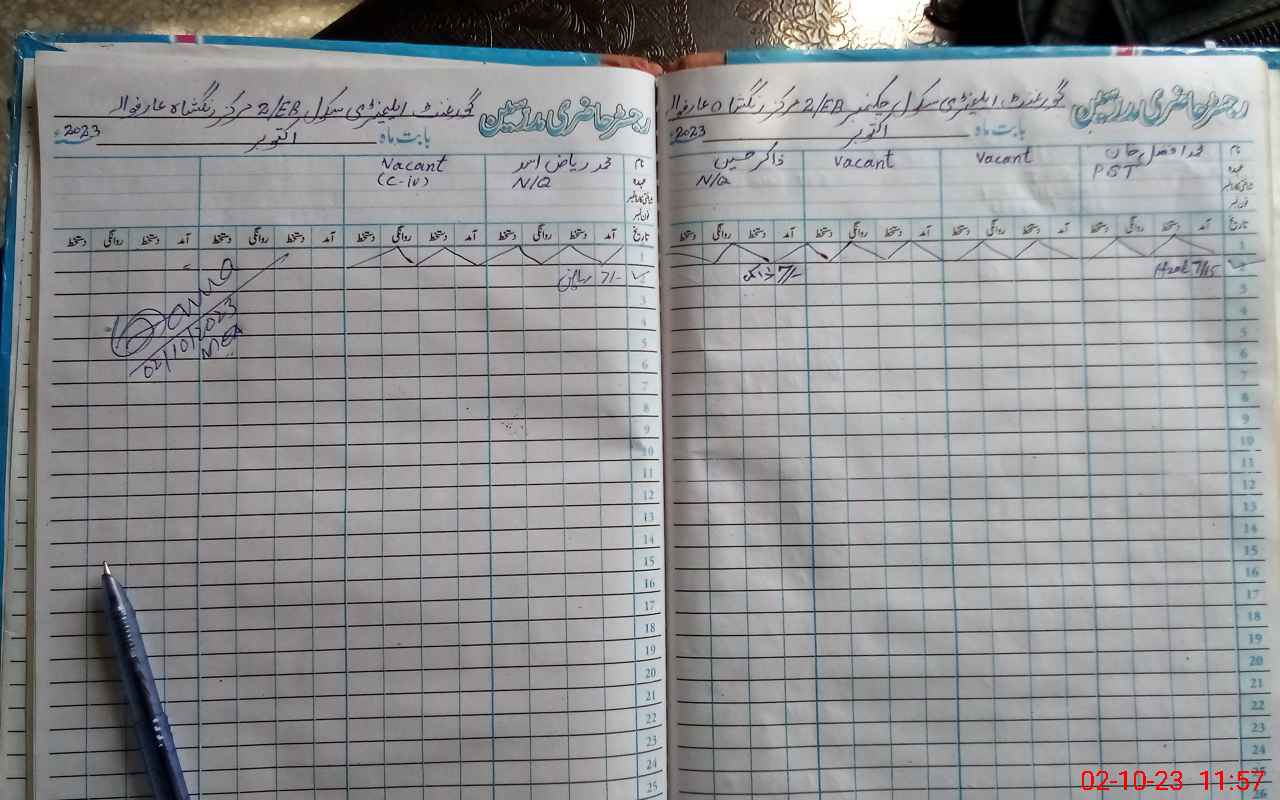 رجسٹر حاضری مدرسین گورنمنٹ ایلیمنٹری سکول چکنمبر 2/EB مرکز رنگشاہ عارفوالہ
بابت ماہ اکتوبر 2023ء
نام محمد افضل خان Vacant Vacant ذاکر حسین
عہدہ PST N/Q
شناختی کارڈ نمبر
فون نمبر
تاریخ آمد دستخط روانگی دستخط آمد دستخط روانگی دستخط آمد دستخط روانگی دستخط آمد دستخط روانگی دستخط
1
2 7/15 7/-
3
4
5
6
7
8
9
10
11
12
13
14
15
16
17
18
19
20
21
22
23
24
25
26
رجسٹر حاضری مدرسین گورنمنٹ ایلیمنٹری سکول 2/EB مرکز رنگشاہ عارفوالہ
بابت ماہ اکتوبر 2023ء
نام محمد ریاض Vacant
عہدہ N/Q (C-iv)
شناختی کارڈ نمبر
فون نمبر
تاریخ آمد دستخط روانگی دستخط آمد دستخط روانگی دستخط آمد دستخط روانگی دستخط آمد دستخط روانگی دستخط
1
2 7/- ریاض
3
4
5
6
7
8
9
10
11
12
13
14
15
16
17
18
19
20
21
22
23
24
25
02/10/2023
MEA
02-10-23 11:57